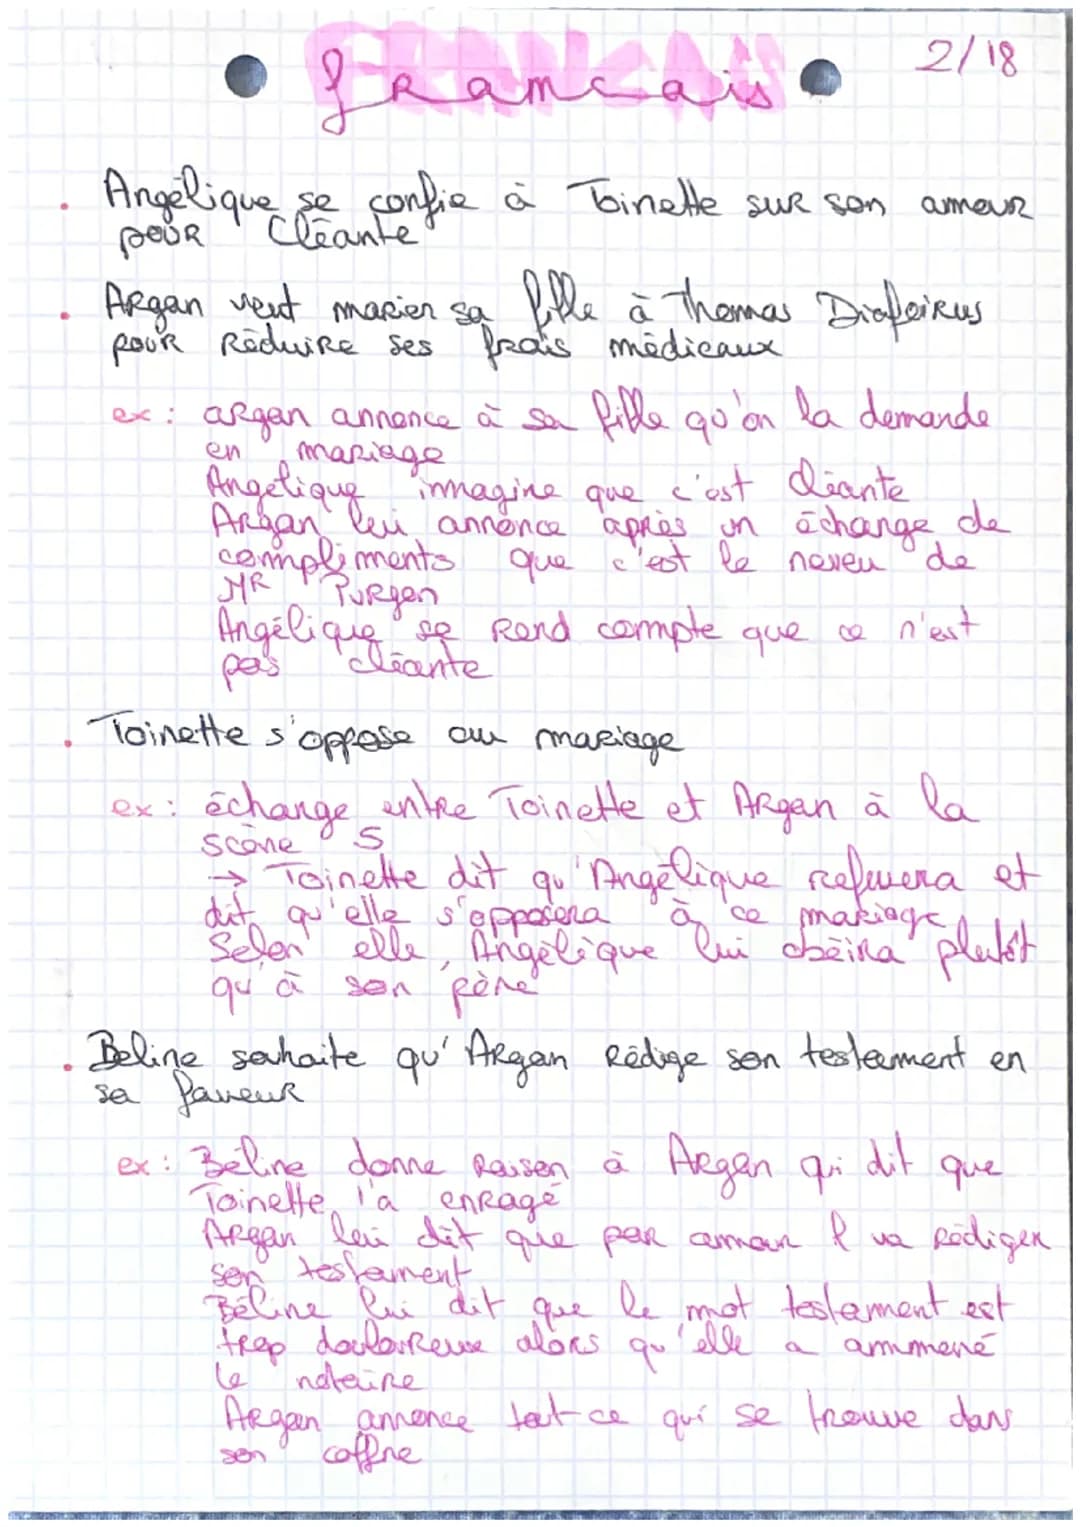 2/18
FRANCAIS
francais
. Angélique se confie à Toinette sur son amour
pour Cléante
. Argan veut marier sa fille à Thomas Diafoirus
pour réduire ses frais médicaux
ex : argan annonce à sa fille qu'on la demande
en mariage
Angélique immagine que c'est Cléante
Argan lui annonce après un échange de
compliments que c'est le neveu de
MR Purgon
Angélique se rend compte que ce n'est
pas cléante
. Toinette s'oppose au mariage
ex : échange entre Toinette et Argan à la
scène 5
→ Toinette dit qu'Angélique refusera et
dit qu'elle s'opposera à ce mariage
Selon elle, Angélique lui obéira plutôt
qu'à son père
. Beline souhaite qu'Argan rédige son testament en
sa faveur
ex : Béline donne raison à Argan qui dit que
Toinette l'a enragé
Argan lui dit que par amour il va rédiger
son testament
Béline lui dit que le mot testament est
trop douloureuse alors qu'elle a ammené
le notaire
Argan annonce tout ce qui se trouve dans
son coffre